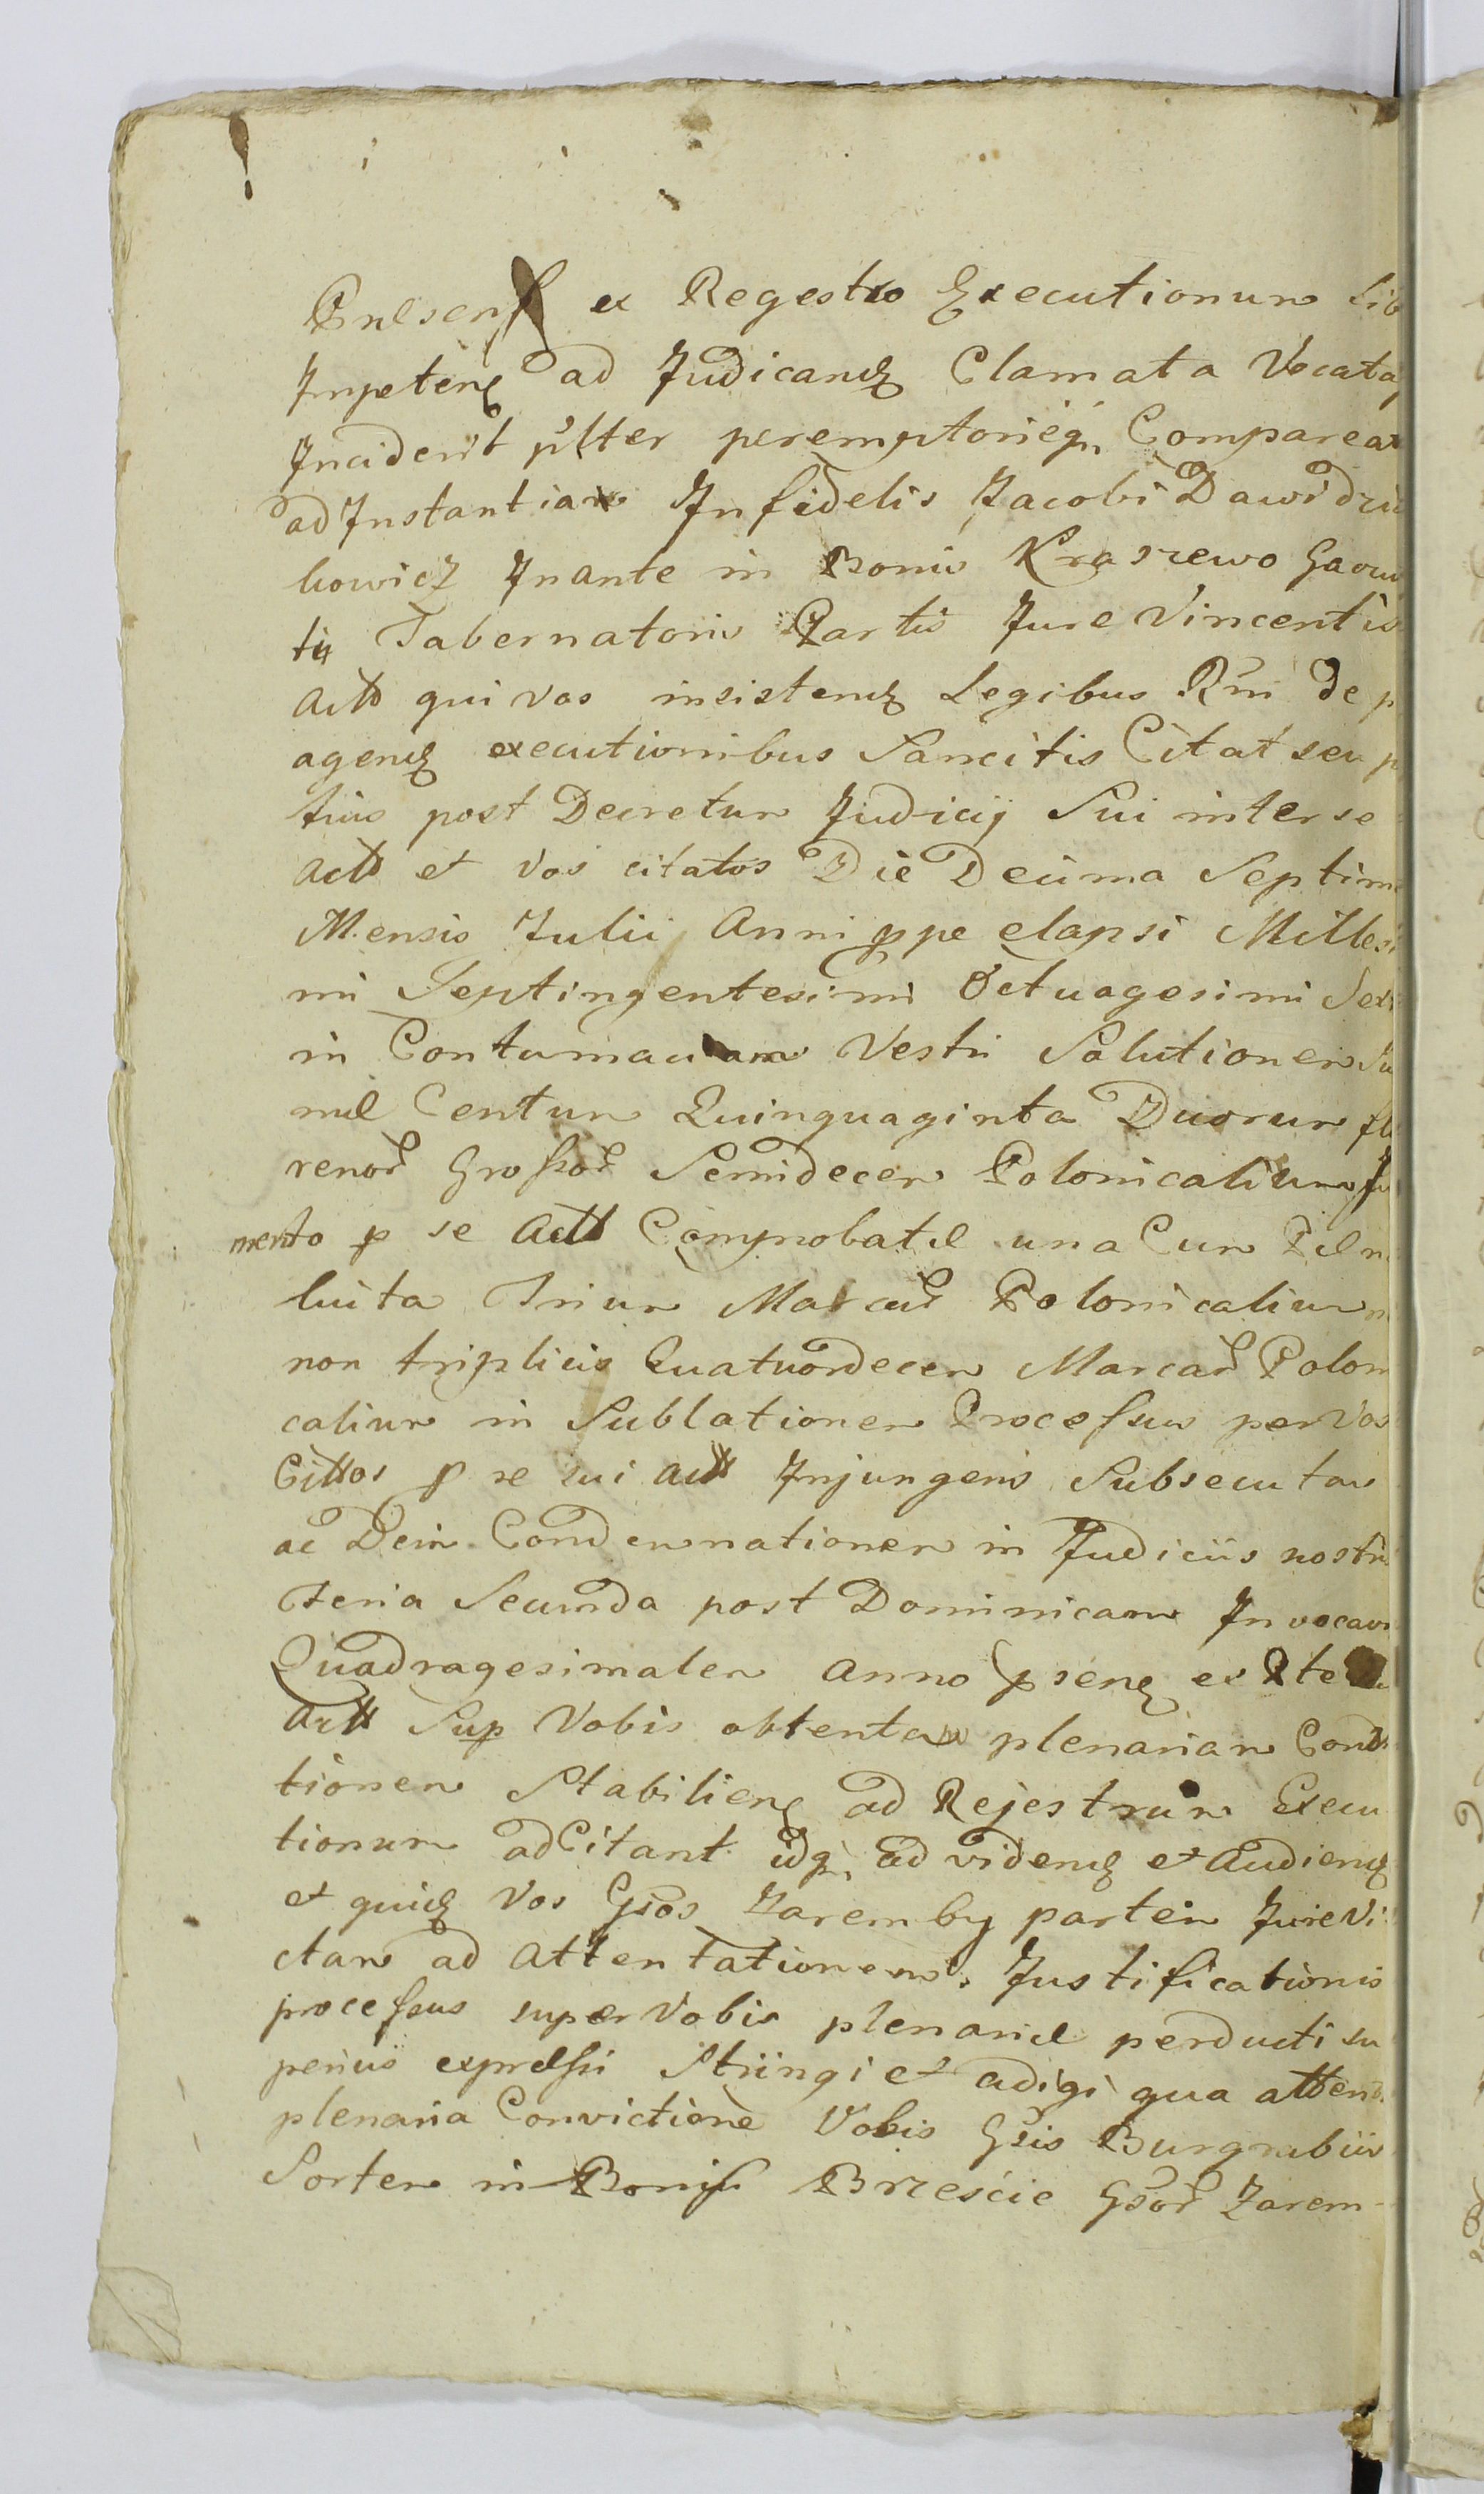 ex Regestro Executionum
ad Clamata Vocata
Comparea
ad Instantiam Infidelis Jacobi Dawidzie
kowicz Inante in Bonis Kraszewo Gawor
tis Tabernatoris Partis Jure Vincentis
Act qui vos Legibus Rni de p
executionibus Sancitis Citat seu p
tius post Decretum Judicij Sui inter se
Act et vos citatos Die Decima Septima
Mensis Julii Anni ppe elapsi Millesi
mi Septingentesimi Octuagesimi Sex
in Contumaciam Vestri Solutionem Su
mæ Centum Quinquaginta Duorum flo
renor Grossor Semidecem Polonicalium Ju
mento p se Act Comprobatæ una Cum Pæn
luita Trium Marcar Polonicalium n
non triplicis Quatuordecem Marcar Poloni
calium in Sublationem Processus per Vos
Cittos p se sui Act Injungens Subsecutam
ac Dein Condemnationem in Judiciis nostri
Feria Secunda post Dominicam Invocavi
Quadragesimalem Anno
Act Sup Vobis obtentam plenariam Cond
tionem ad Rejestrum Execu
tionum adCitant idq ad
et Vos Gsos Zaremby partem Jurevi
ctam ad Attentationem Justificationis
processus super Vobis plenariæ perducti su
perius expressi Stringi et adigi qua attent
plenaria Convictione Vobis Gsis Burgrabiis
Sortem in Bonis Brzeście Gsor Zarem-